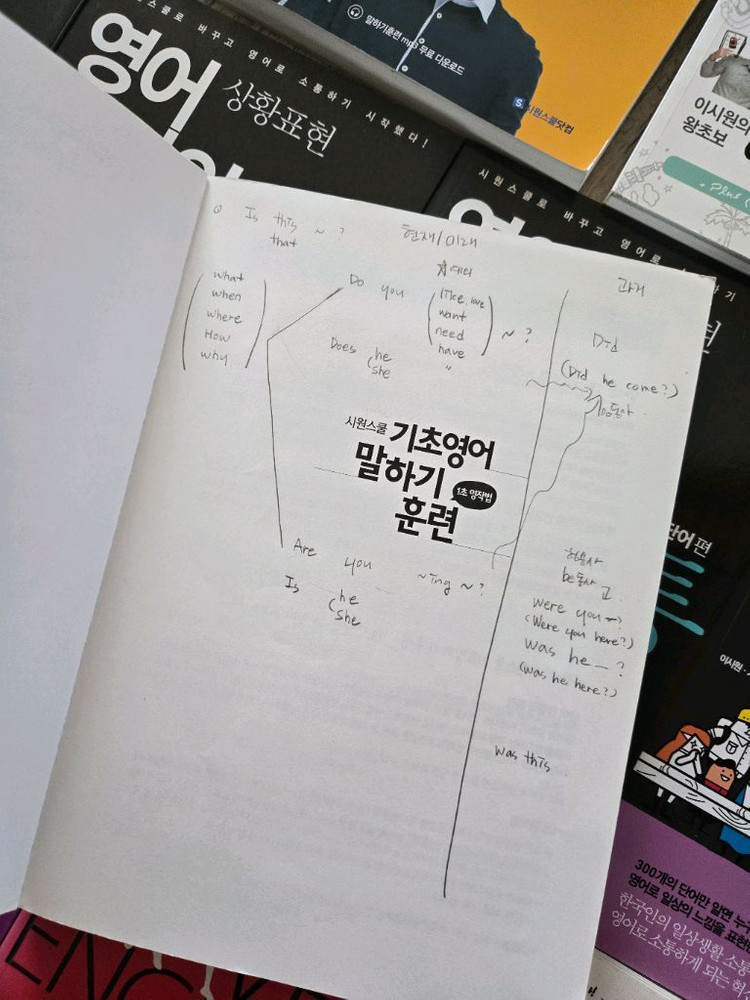 말하기훈련 mp3 무료 다운로드
S. 시원스쿨닷컴
시원스쿨로 바꾸고 영어로 소통하기 시작했다!
영어
상황표현
이시원의
왕초보
Plus
시원스쿨로 바꾸고 영어로 소통하기
Is this ~ ?
that
현재/미래
과거
what
when
where
How
why
Do you
like, love
want
need
have
"
~ ?
Does he
she
Did
(Did he come?)
시원스쿨 기초영어
말하기
1초 영작법
훈련
Are you ~ing ~ ?
Is he
she
형용사
be동사
were you ~?
(Were you here?)
was he _ ?
(was he here?)
was this
단어 편
이시원
300개의 단어만 알면 누구
영어로 일상의 느낌을 표현
한국인의 일상생활 소통
영어로 소통하게 되는 혁